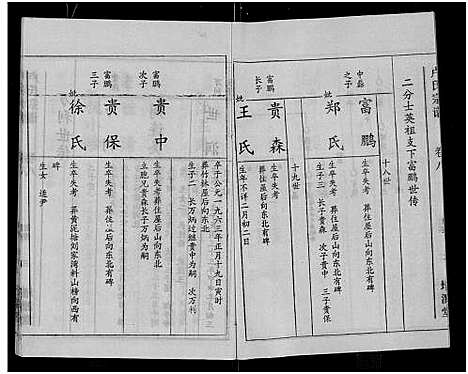 卢氏宗谱 卷八
二分士英祖支下富鹏世传
十八世
中彝之子
富鹏 生卒失考 葬住屋后山向东北有碑
妣郑氏 生卒失考 葬住屋后山向东北有碑
生子三 长子贵森 次子贵中 三子贵保
十九世
富鹏长子
贵森 生年不详二月初二日
卒于公元一九六三年正月十九日寅时
葬竹林屋后向东北
妣王氏 生卒失考 葬住屋后向东北有碑
生子二 长万炳过继贵中为嗣 次万刊
富鹏次子
贵中 生卒失考 葬住屋后山向东北
立胞兄贵森长子万炳为嗣
富鹏三子
贵保 生卒失考 葬住屋后向东北有碑
妣徐氏 生卒失考 葬黄泥塘刘家湾料山榜向西有碑
生女 莲尹